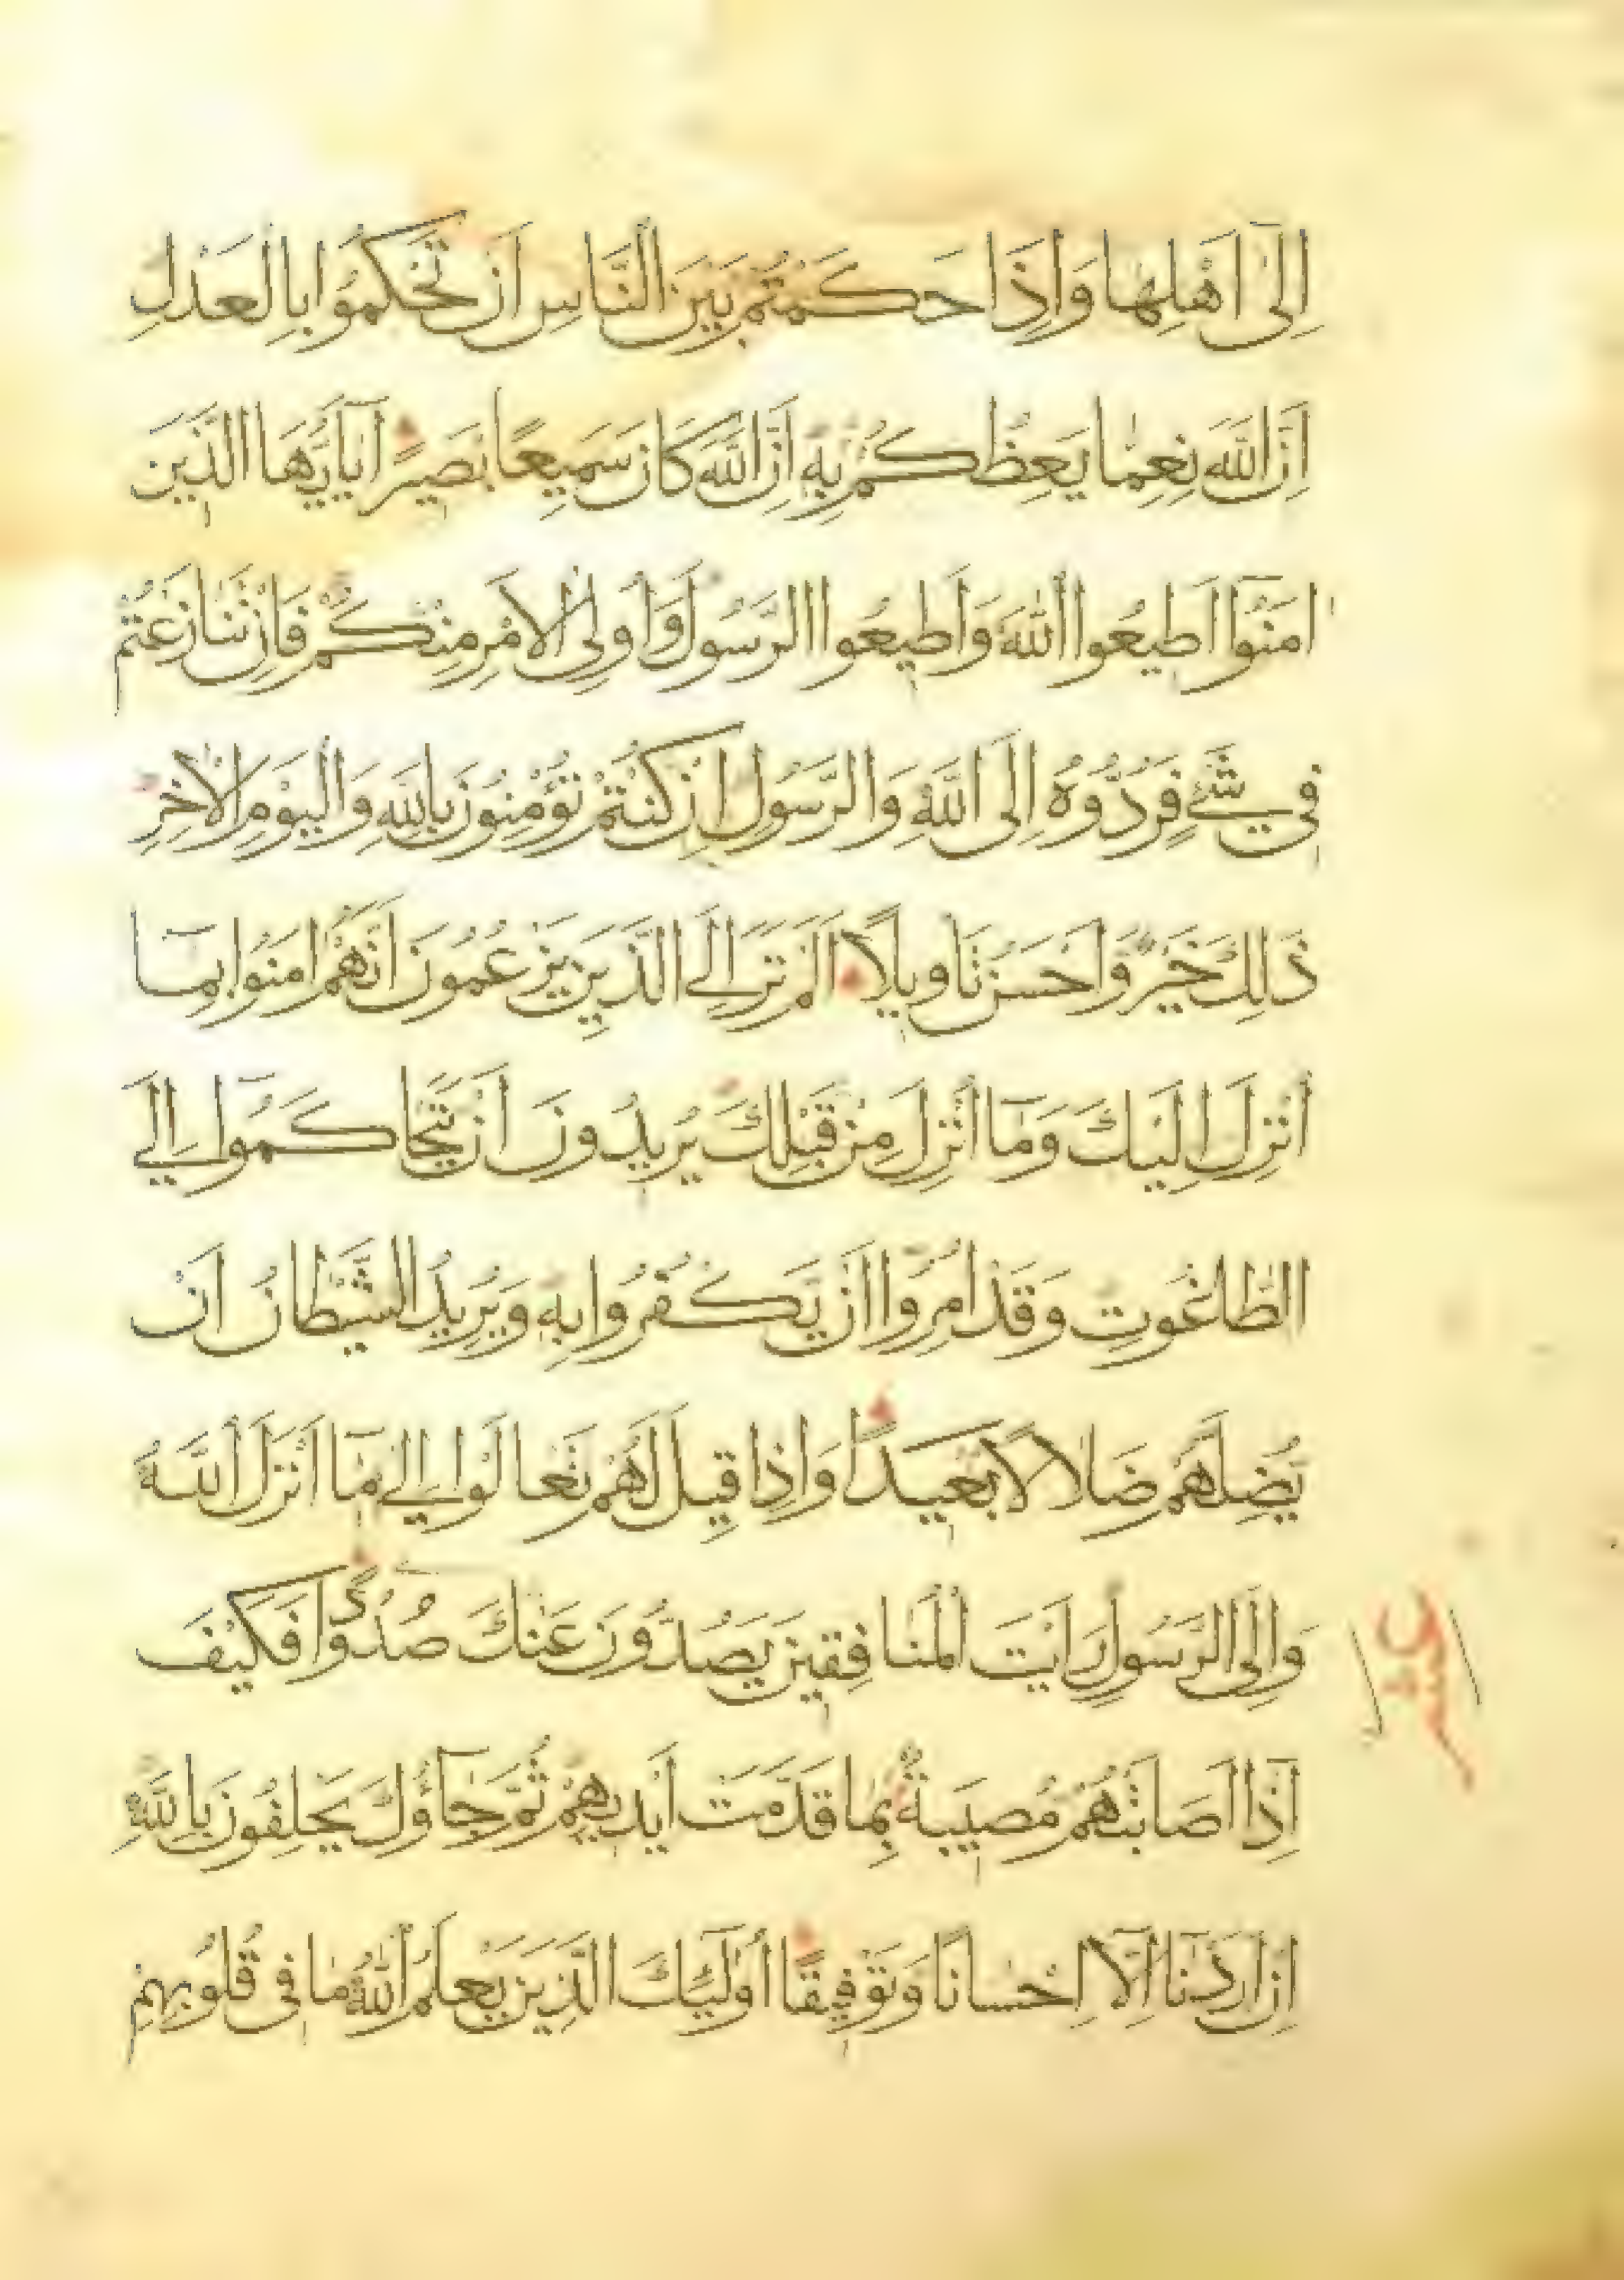 اِلٰى اَهْلِهَا وَاِذَا حَكَمْتُمْ بَيْنَ النَّاسِ اَنْ تَحْكُمُوا بِالْعَدْلِ
اِنَّ اللّٰهَ نِعِمَّا يَعِظُكُمْ بِهٖ اِنَّ اللّٰهَ كَانَ سَمِيعًا بَصِيرًا يَا اَيُّهَا الَّذِينَ
اٰمَنُوا اَطِيعُوا اللّٰهَ وَاَطِيعُوا الرَّسُولَ وَاُولِى الْاَمْرِ مِنْكُمْ فَاِنْ تَنَازَعْتُمْ
فِي شَيْءٍ فَرُدُّوهُ اِلَى اللّٰهِ وَالرَّسُولِ اِنْ كُنْتُمْ تُؤْمِنُونَ بِاللّٰهِ وَالْيَوْمِ الْاٰخِرِ
ذٰلِكَ خَيْرٌ وَاَحْسَنُ تَاْوِيلًا اَلَمْ تَرَ اِلَى الَّذِينَ يَزْعُمُونَ اَنَّهُمْ اٰمَنُوا بِمَا
اُنْزِلَ اِلَيْكَ وَمَا اُنْزِلَ مِنْ قَبْلِكَ يُرِيدُونَ اَنْ يَتَحَاكَمُوا اِلَى
الطَّاغُوتِ وَقَدْ اُمِرُوا اَنْ يَكْفُرُوا بِهٖ وَيُرِيدُ الشَّيْطَانُ اَنْ
يُضِلَّهُمْ ضَلَالًا بَعِيدًا وَاِذَا قِيلَ لَهُمْ تَعَالَوْا اِلٰى مَا اَنْزَلَ اللّٰهُ
وَاِلَى الرَّسُولِ رَاَيْتَ الْمُنَافِقِينَ يَصُدُّونَ عَنْكَ صُدُودًا فَكَيْفَ
اِذَا اَصَابَتْهُمْ مُصِيبَةٌ بِمَا قَدَّمَتْ اَيْدِيهِمْ ثُمَّ جَاؤُكَ يَحْلِفُونَ بِاللّٰهِ
اِنْ اَرَدْنَا اِلَّا اِحْسَانًا وَتَوْفِيقًا اُولٰئِكَ الَّذِينَ يَعْلَمُ اللّٰهُ مَا فِى قُلُوبِهِمْ
عشر